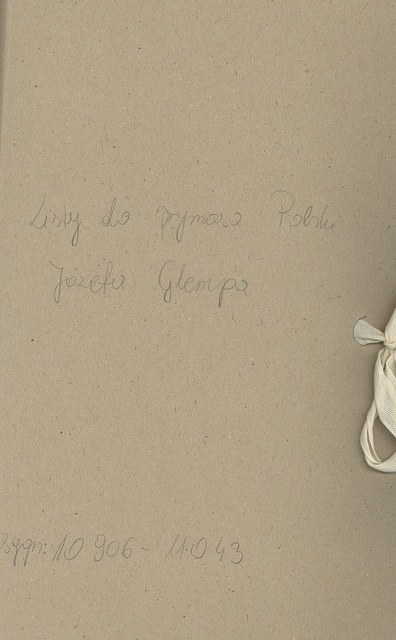 Listy do prymasa Polski
Józefa Glempa
sygn: 10 906 - 11.043